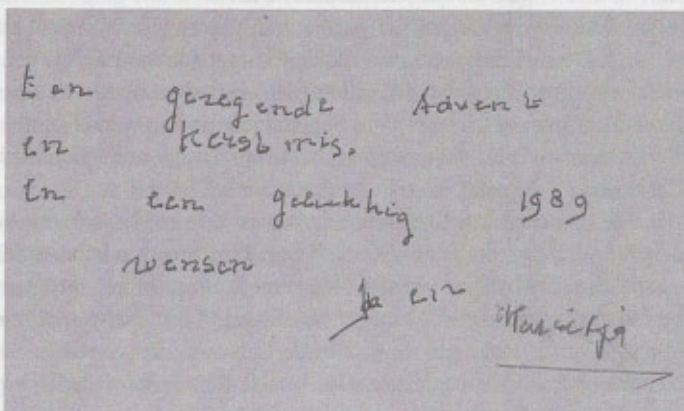 Een gezegende Advent
en Kerstmis.
En een gelukkig 1989
wensen
en